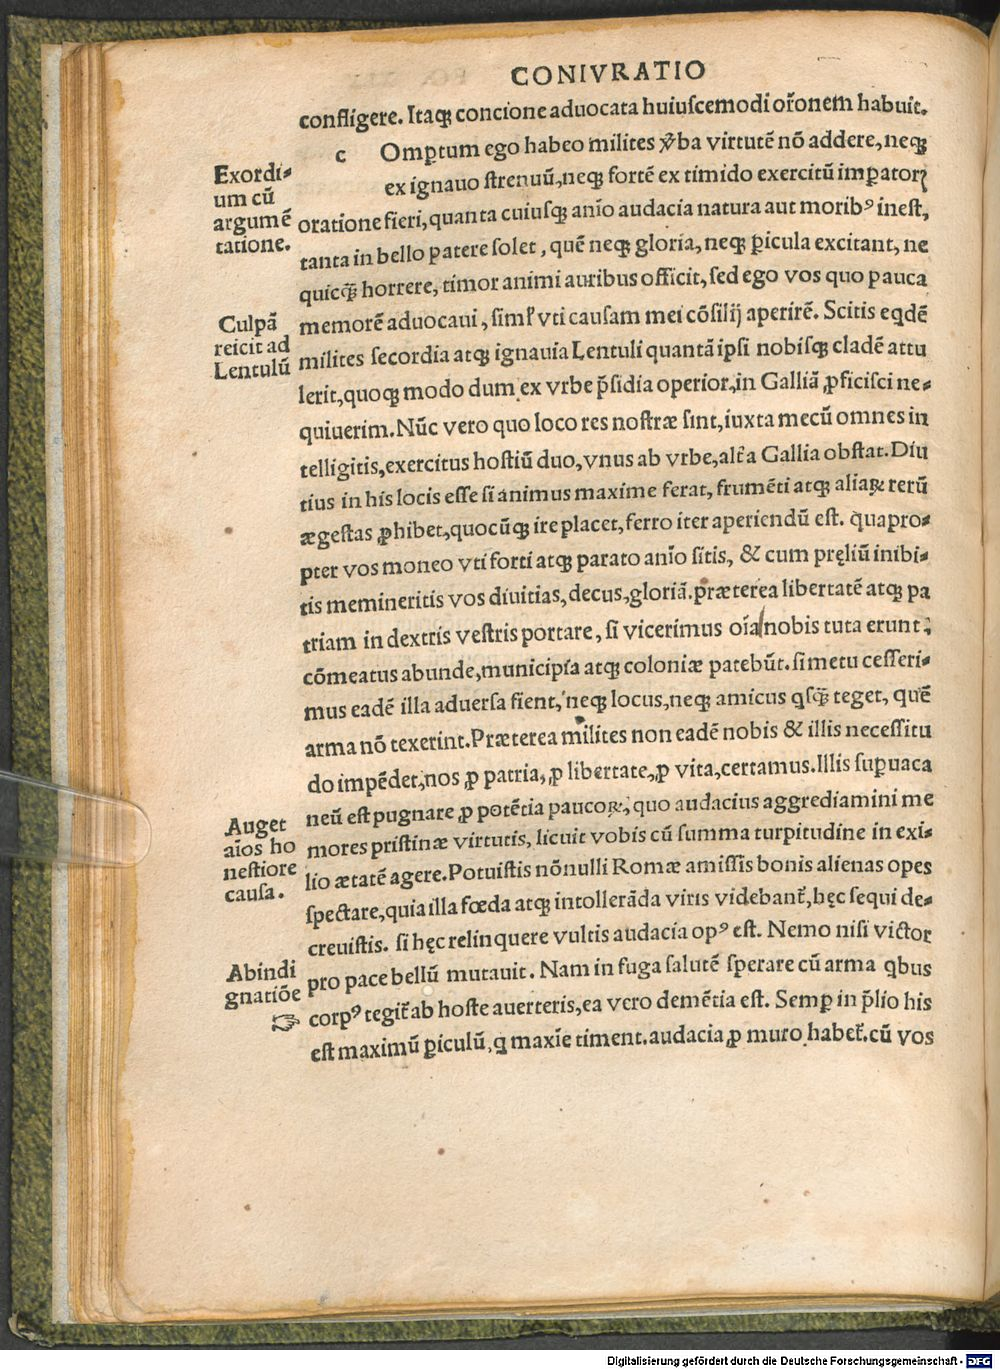 CONIVRATIO
confligere. Itaqꝫ concione aduocata huiuscemodi or̃onem habuit.
c Omꝑtum ego habeo milites ꝟba virtutē nō addere, neqꝫ
Exordi-
um cū
argumē
tatione.
ex ignauo strenuū, neqꝫ fortē ex timido exercitū imꝑatorꝭ
oratione fieri, quanta cuiusqꝫ anīo audacia natura aut moribꝰ inest,
tanta in bello patere solet, quē neqꝫ gloria, neqꝫ ꝑicula excitant, ne
quicq̃ horrere, timor animi auribus officit, sed ego vos quo pauca
Culpā
reicit ad
Lentulū
memorē aduocaui, simul vti causam mei cōsilij aperirē. Scitis eqdē
milites secordia atqꝫ ignauia Lentuli quantā ipsi nobisqꝫ cladē attu
lerit, quoqꝫ modo dum ex vrbe p̄sidia operior, in Galliā ꝓficisci ne-
quiuerim. Nūc vero quo loco res nostræ sint, iuxta mecū omnes in
telligitis, exercitus hostiū duo, vnus ab vrbe, alr̃ a Gallia obstat. Diu
tius in his locis esse si animus maxime ferat, frumēti atqꝫ aliaꝝ rerū
ægestas ꝓhibet, quocūqꝫ ire placet, ferro iter aperiendū est. quapro-
pter vos moneo vti forti atqꝫ parato anīo sitis, & cum pręliū inibi-
tis memineritis vos diuitias, decus, gloriā. præterea libertatē atqꝫ pa
triam in dextris vestris portare, si vicerimus oīa nobis tuta erunt;
cōmeatus abunde, municipia atqꝫ coloniæ patebūt. si metu cesseri-
mus eadē illa aduersa fient, neqꝫ locus, neqꝫ amicus qsq̃ teget, quē
arma nō texerint. Præterea milites non eadē nobis & illis necessitu
do impēdet, nos ꝓ patria, ꝓ libertate, ꝓ vita, certamus. Illis suꝑuaca
Auget
aīos ho
nestiore
causa.
neū est pugnare ꝓ potētia paucoꝝ, quo audacius aggrediamini me
mores pristinæ virtutis, licuit vobis cū summa turpitudine in exi-
lio ætatē agere. Potuistis nōnulli Romæ amissis bonis alienas opes
spectare, quia illa fœda atqꝫ intollerāda viris videbant̃, hęc sequi de-
creuistis. si hęc relinquere vultis audacia opꝰ est. Nemo nisi victor
Ab indi
gnatiōe
pro pace bellū mutauit. Nam in fuga salutē sperare cū arma qbus
corpꝰ tegit̃ ab hoste auerteris, ea vero demētia est. Semꝑ in p̄lio his
est maximū ꝑiculū, q maxīe timent. audacia ꝓ muro habet̃. cū vos
Digitalisierung gefördert durch die Deutsche Forschungsgemeinschaft - DFG